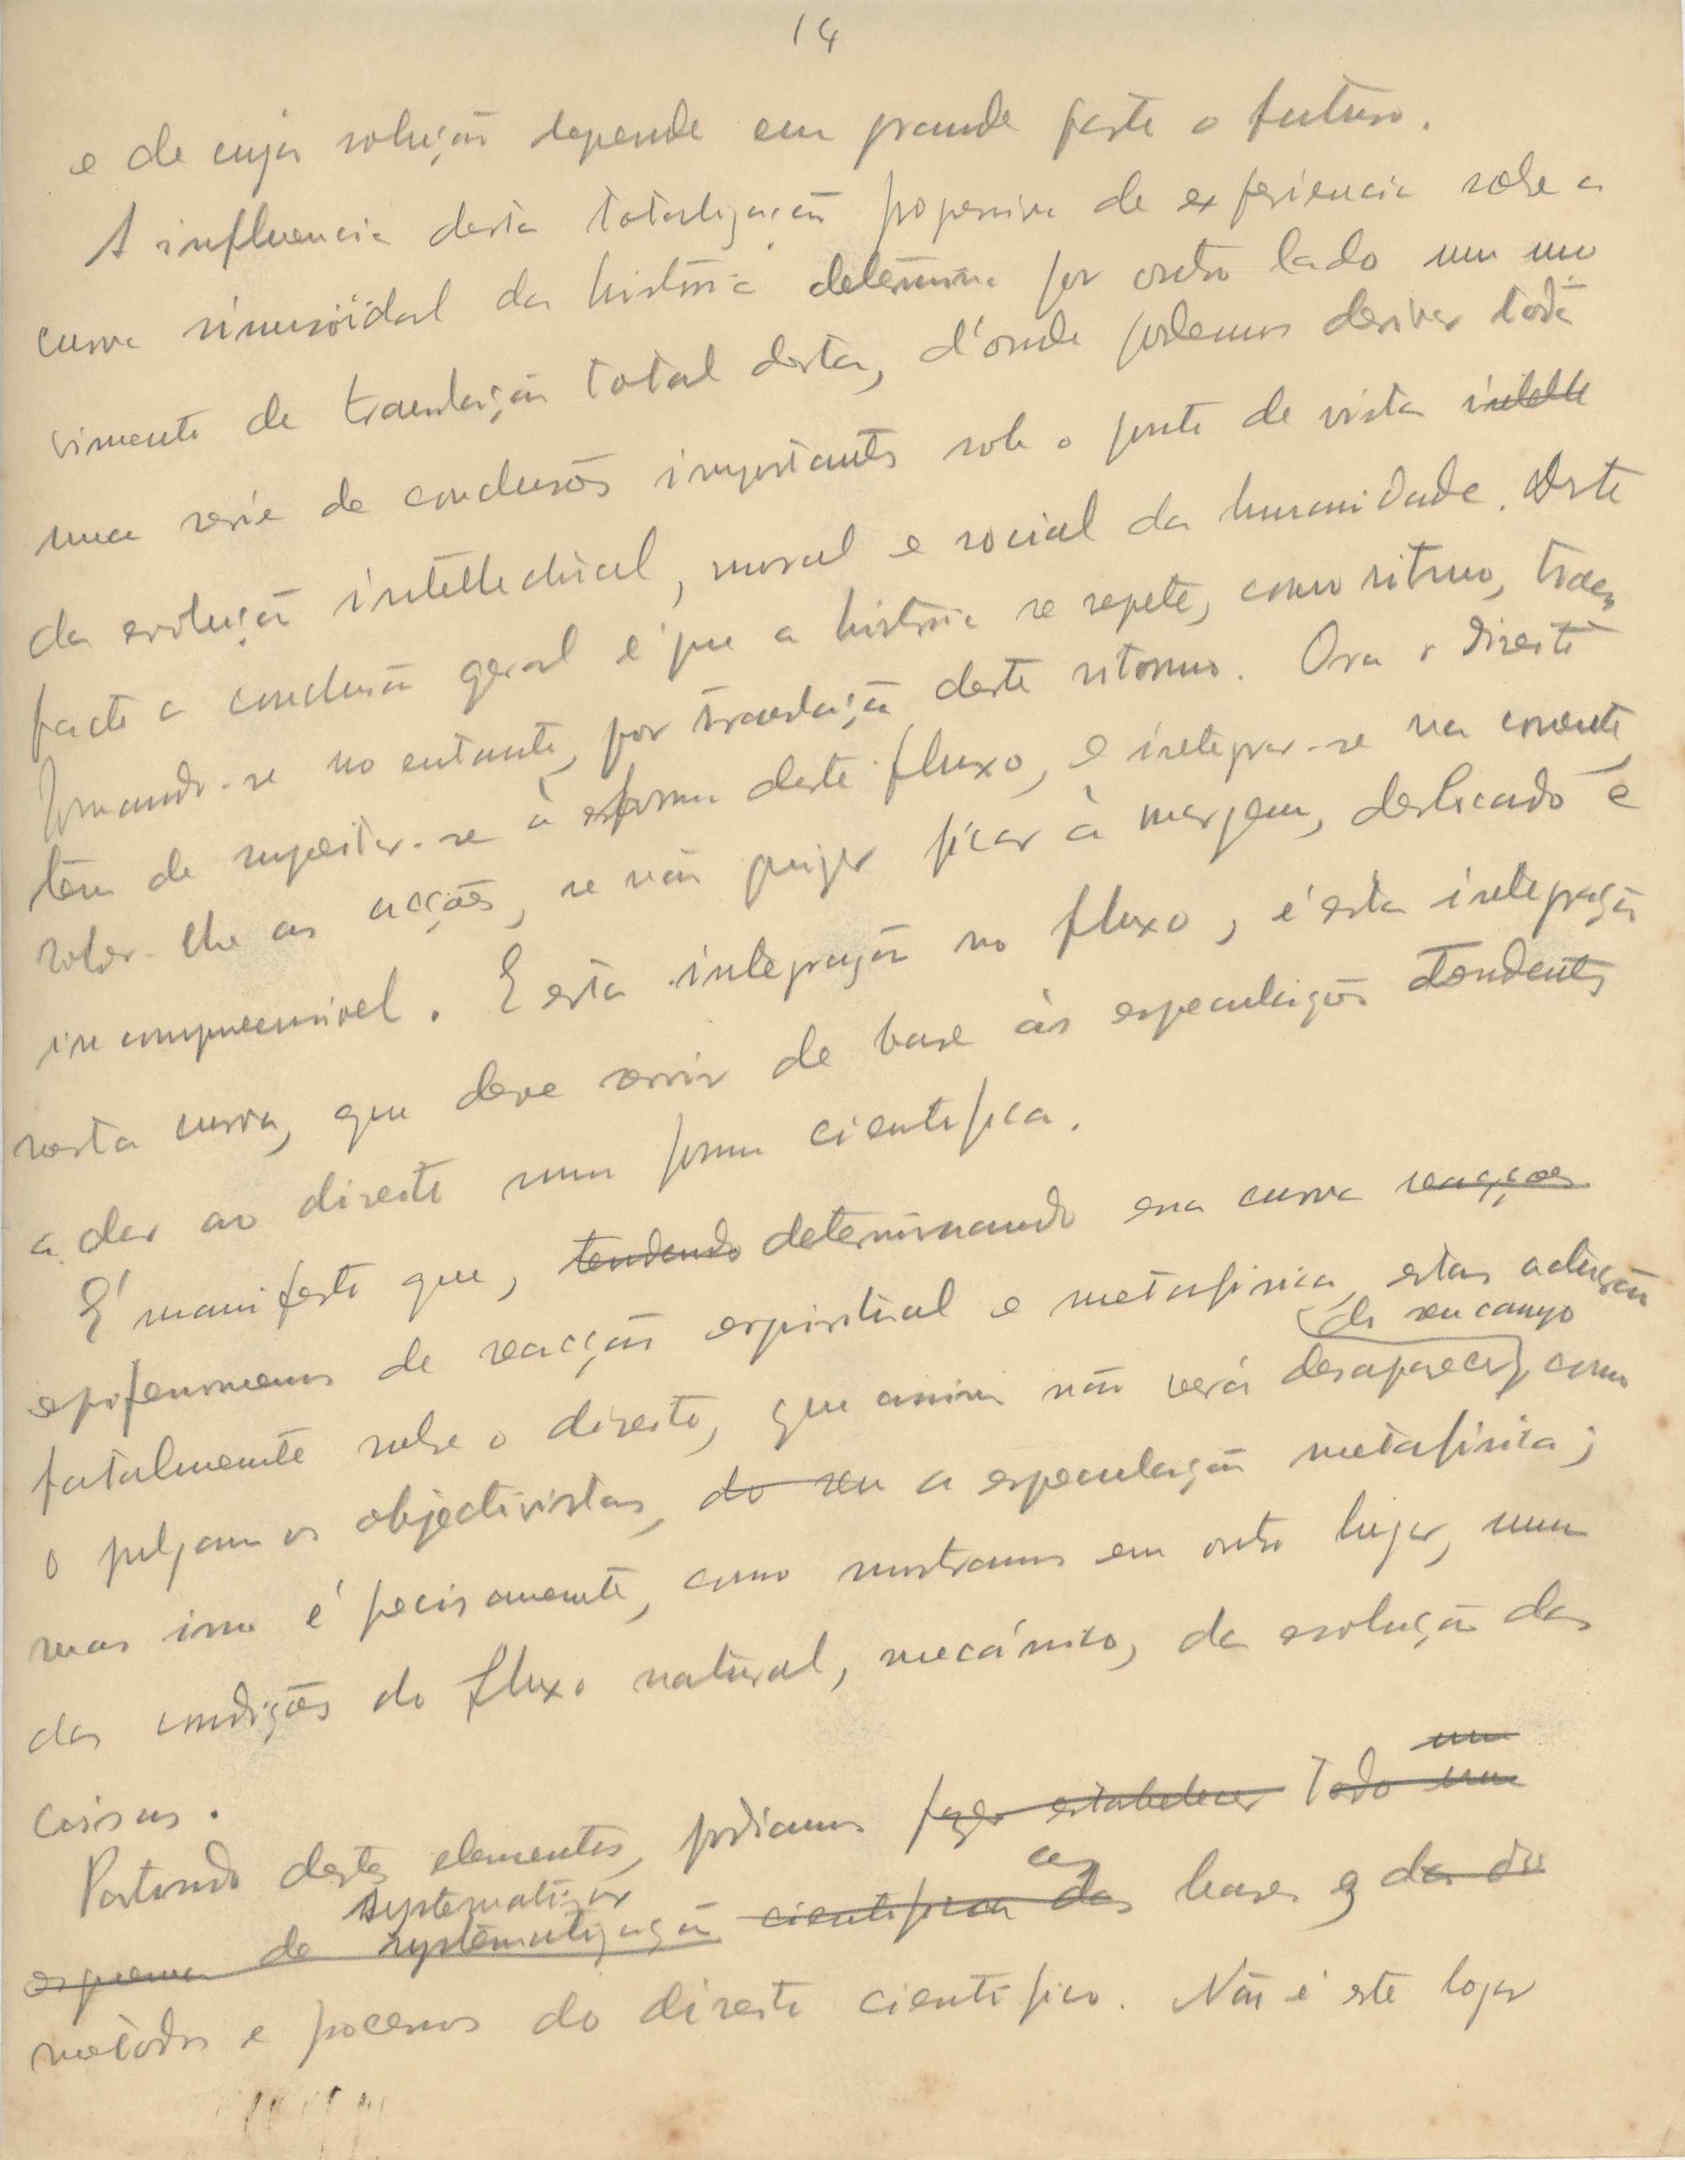 14
e de cuja solução depende em grande parte o futuro.
A influencia desta totalização progressiva de experiencia sobre a
curva sinusöidal da história determina por outro lado um mo
vimento de translação total desta, d'onde podemos derivar toda
uma serie de conclusões importantes sob o ponto de vista intelle
da evolução intellectual, moral e social da humanidade. Deste
facto a conclusão geral é que a história se repete, como ritmo, trans
formando-se no entanto, por translação deste ritmo. Ora o direito
tem de sujeitar-se à forma deste fluxo, e integrar-se na corrente,
se não quizer ficar à margem, deslocado e
incompreensivel. E esta integração no fluxo, é esta integração
nesta curva, que deve servir de base às especulações tendentes
a dar ao direito uma forma cientifica.
E' manifesto que, tendendo determinando essa curva reacções
epifenomenos de reacção espiritual e metafisica, estas actuarão
do seu campo
fatalmente sobre o direito, que assim não verá desaparecer, como
o julgam os objectivistas, do seu a especulação metafisica;
mas isso é precisamente, como mostramos em outro lugar, uma
das condições do fluxo natural, mecánico, da evolução das
coisas.
um
Partindo destes elementos, podiamos fazer estabelecer todo um
systematizar as
esquema de systematização cientifica das bases e da do
metodos e processos do direito cientifico. Não é este logar